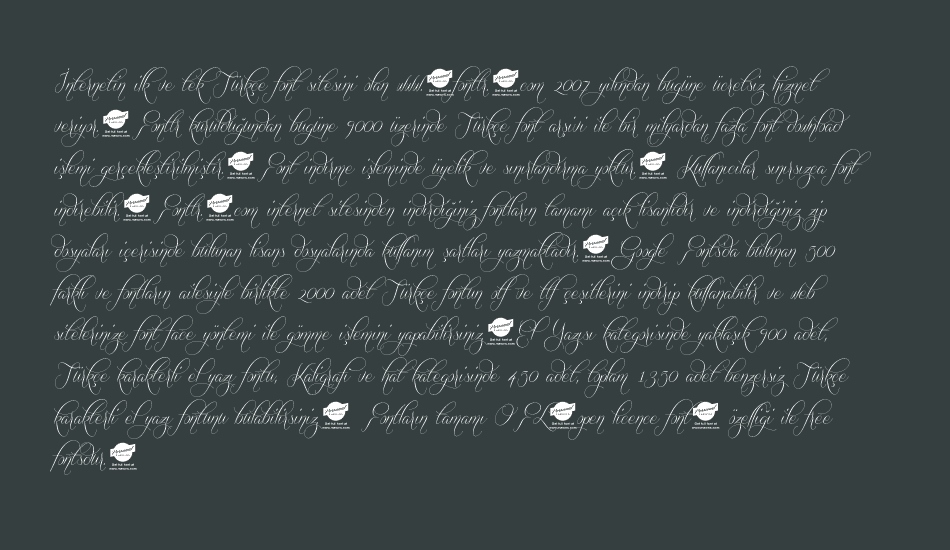 İnternetin ilk ve tek Türkçe font sitesini olan www fonttr com 2007 yılından bugüne ücretsiz hizmet
veriyor Fonttr kurulduğundan bugüne 9000 üzerinde Türkçe font arşivi ile bir milyardan fazla font download
işlemi gerçekleştirilmiştir Font indirme işleminde üyelik ve sınırlandırma yoktur Kullanıcılar sınırsızca font
indirebilir Fonttr com internet sitesinden indirdiğiniz fontların tamamı açık lisanlıdır ve indirdiğiniz zip
dosyaları içerisinde bulunan lisans dosyalarında kullanım şartları yazmaktadır Google Fonts'da bulunan 500
farklı ve fontların ailesiyle birlikte 2000 adet Türkçe fontun otf ve ttf çeşitlerini indirip kullanabilir ve web
sitelerinize font face yöntemi ile gömme işlemini yapabilirsiniz El Yazısı kategorisinde yaklaşık 900 adet,
Türkçe karakterli el yazı fontu, Kaligrafi ve hat kategorisinde 450 adet, toplam 1350 adet benzersiz Türkçe
karakterli el yazı fontunu bulabilirsiniz Fontların tamamı OFL open licence font özelliği ile free
fontsdur